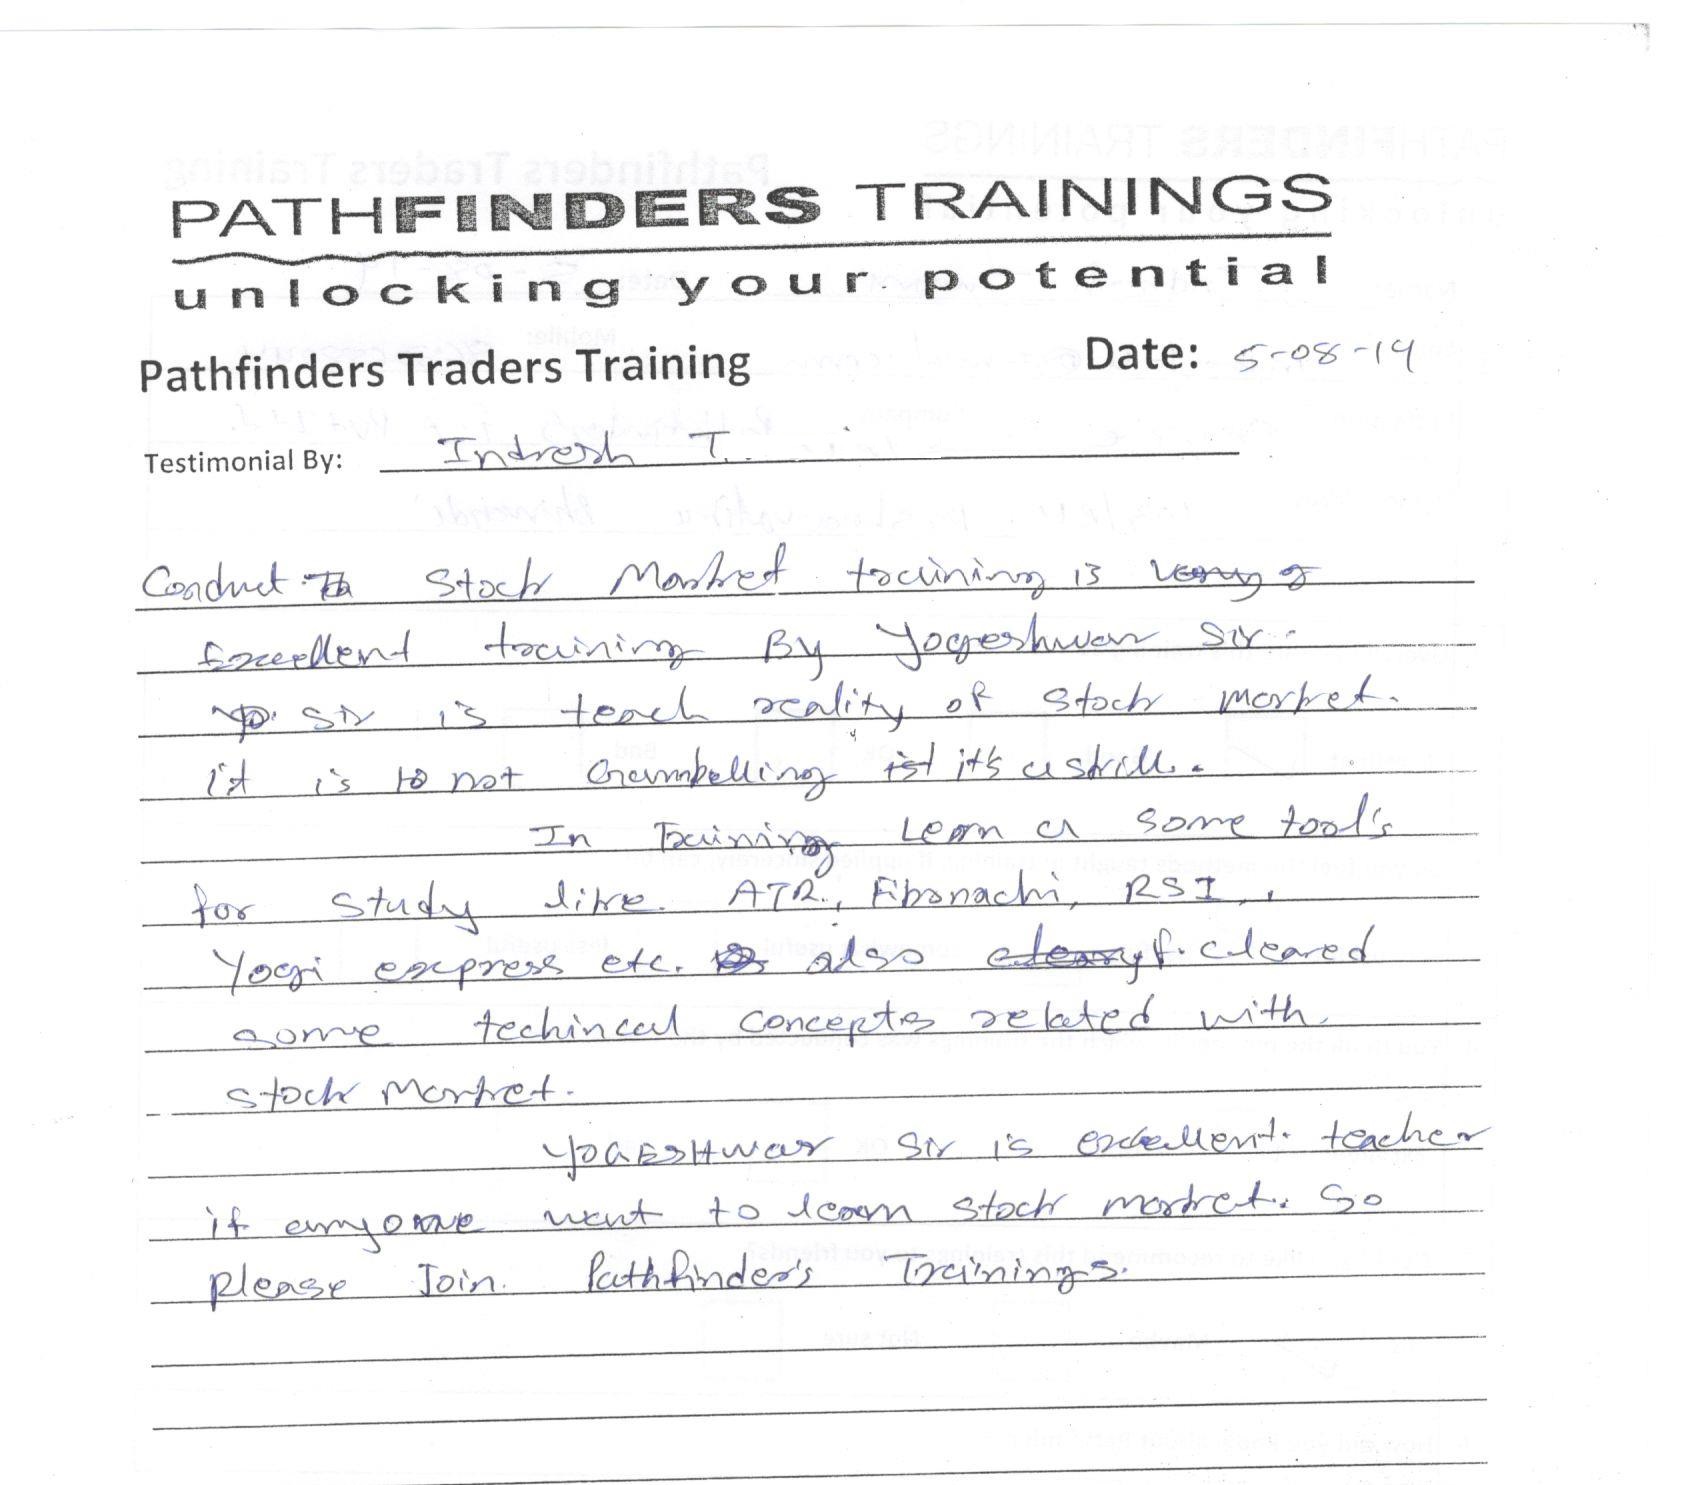 PATHFINDERS TRAININGS
unlocking your potential
Pathfinders Traders Training Date: 5-08-14
Testimonial By: Indresh T.
Conduct Stock Market training is
Excellent training By Yogeshwar Sir.
Sir is teach reality of stock market.
it is not Gambelling it's a skill.
In Training Learn a some tool's
for study like ATR, Fibonachi, RSI,
Yogi express etc. also cleared
some techincal concepts related with
stock market.
YOGESHwar Sir is excellent teacher
if anyone want to learn stock market. So
please Join Pathfinder's Trainings.